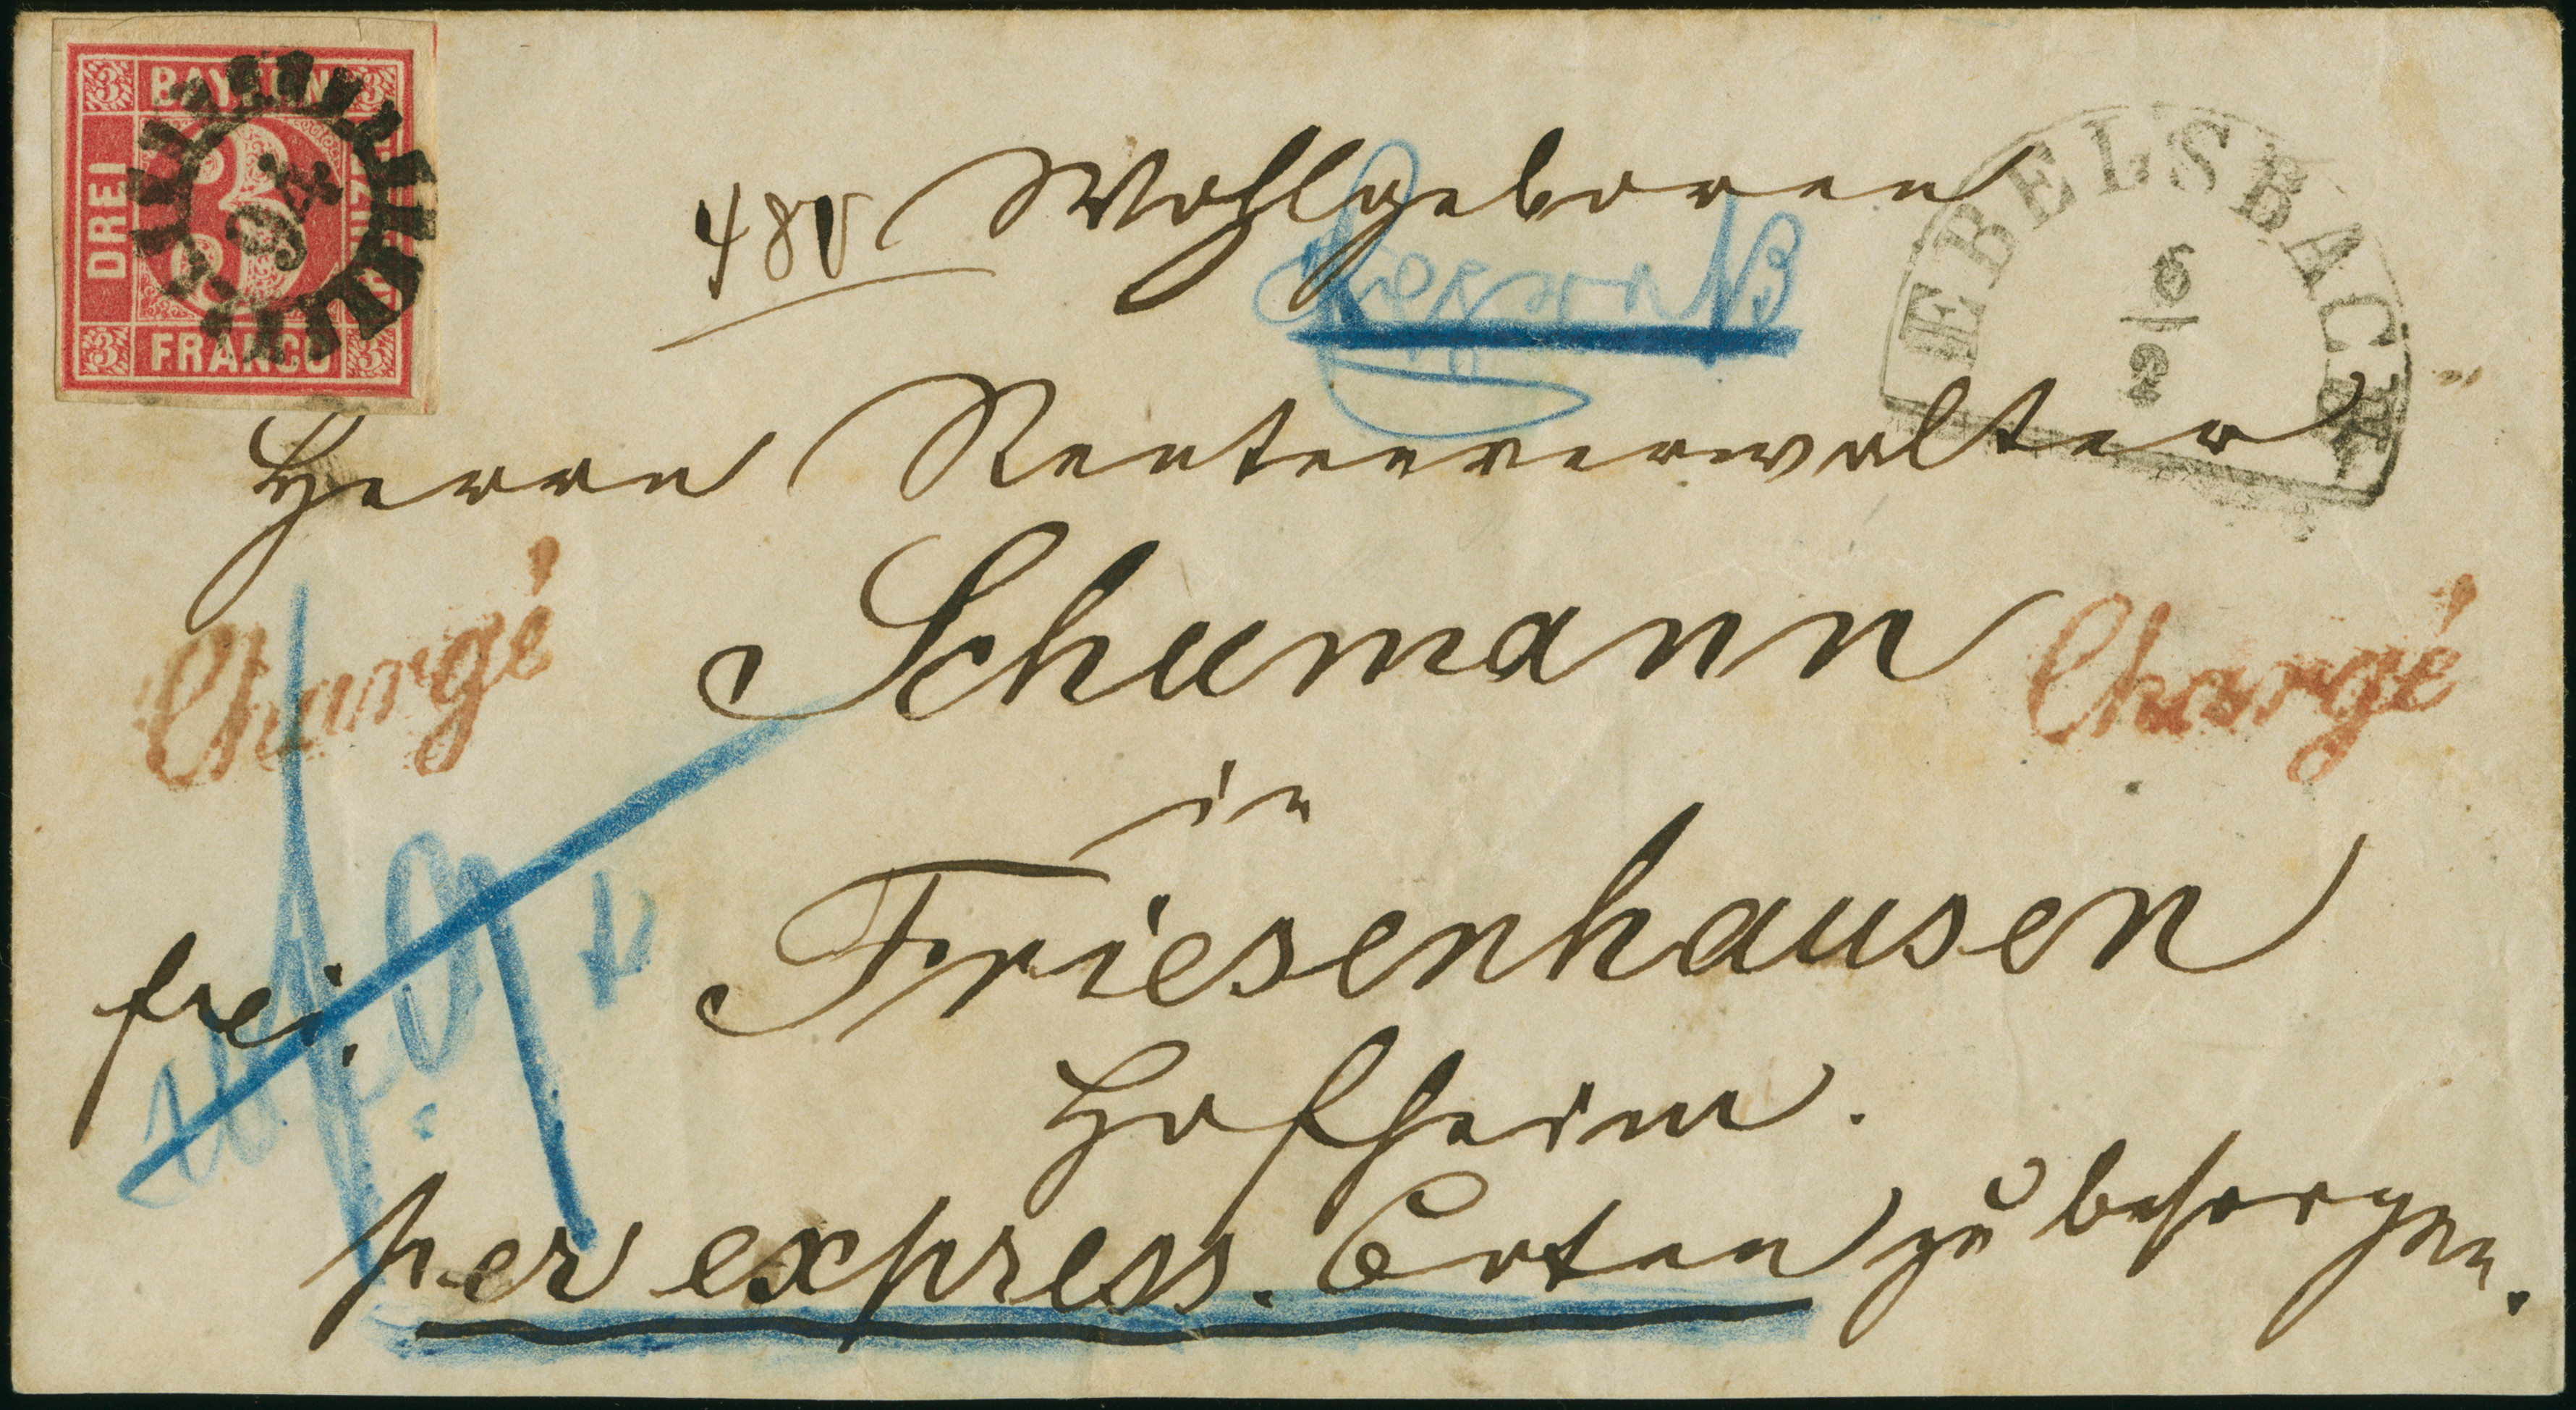 BAYERN
3 3
DREI
3
KREUZER
94
FRANCO
3 3
EBELSBACH
6
2
480 Wohlgeboren
Herrn Rentenverwalter
Chargé
Schumann
Chargé
in
Friesenhausen
frei.
Hofheim.
per express. Boten zu besorgen.